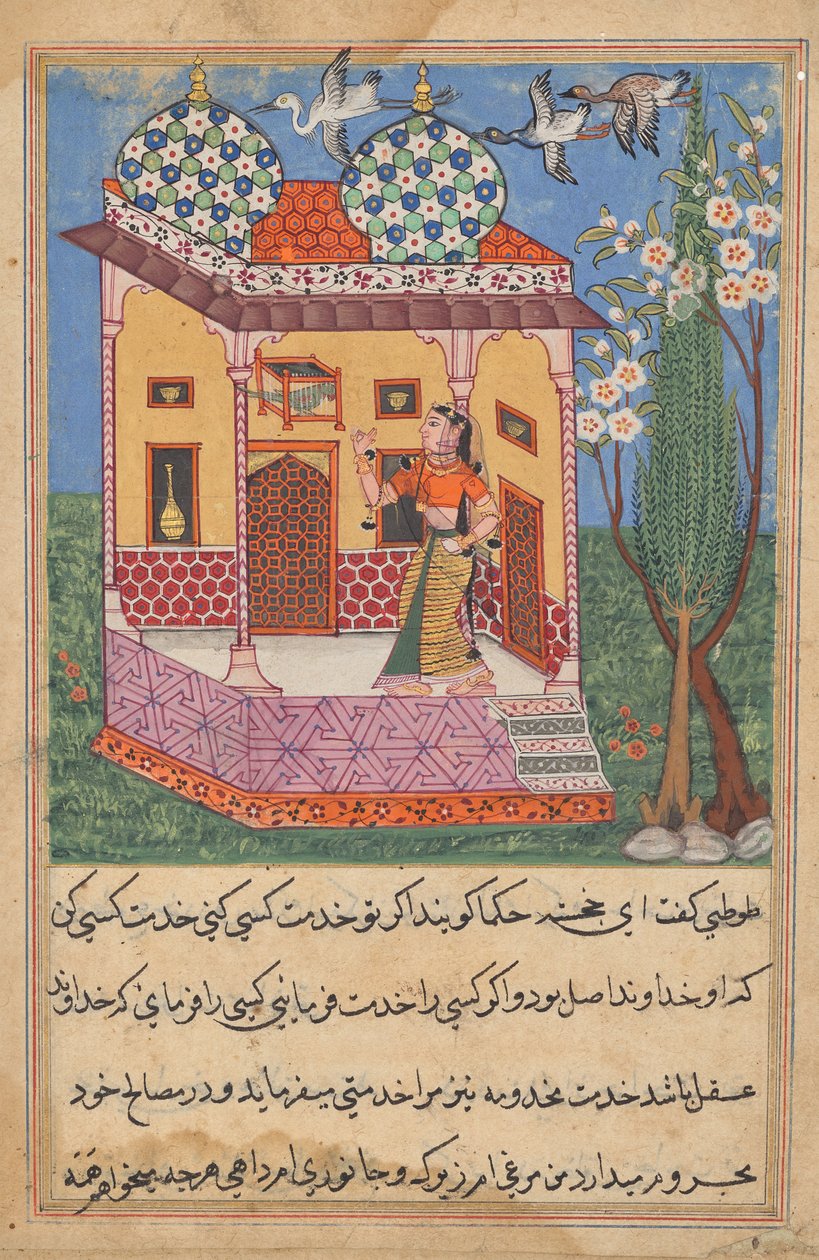 طوطی کفت ای خجسته حکما کویند اکر تو خدمت کسی کنی خدمت کسی کن
که او خداوند اصل بود و اکر کسی را خدمت فرمایی کسی را فرمای که خداوند
عقل باشد خدمت مخدومه نیز مرا خدمتی میفرماید و در مصالح خود
محروم میدارد من مرغی ام زیرک و جانوری ام داهی هرچه میخواهم همه